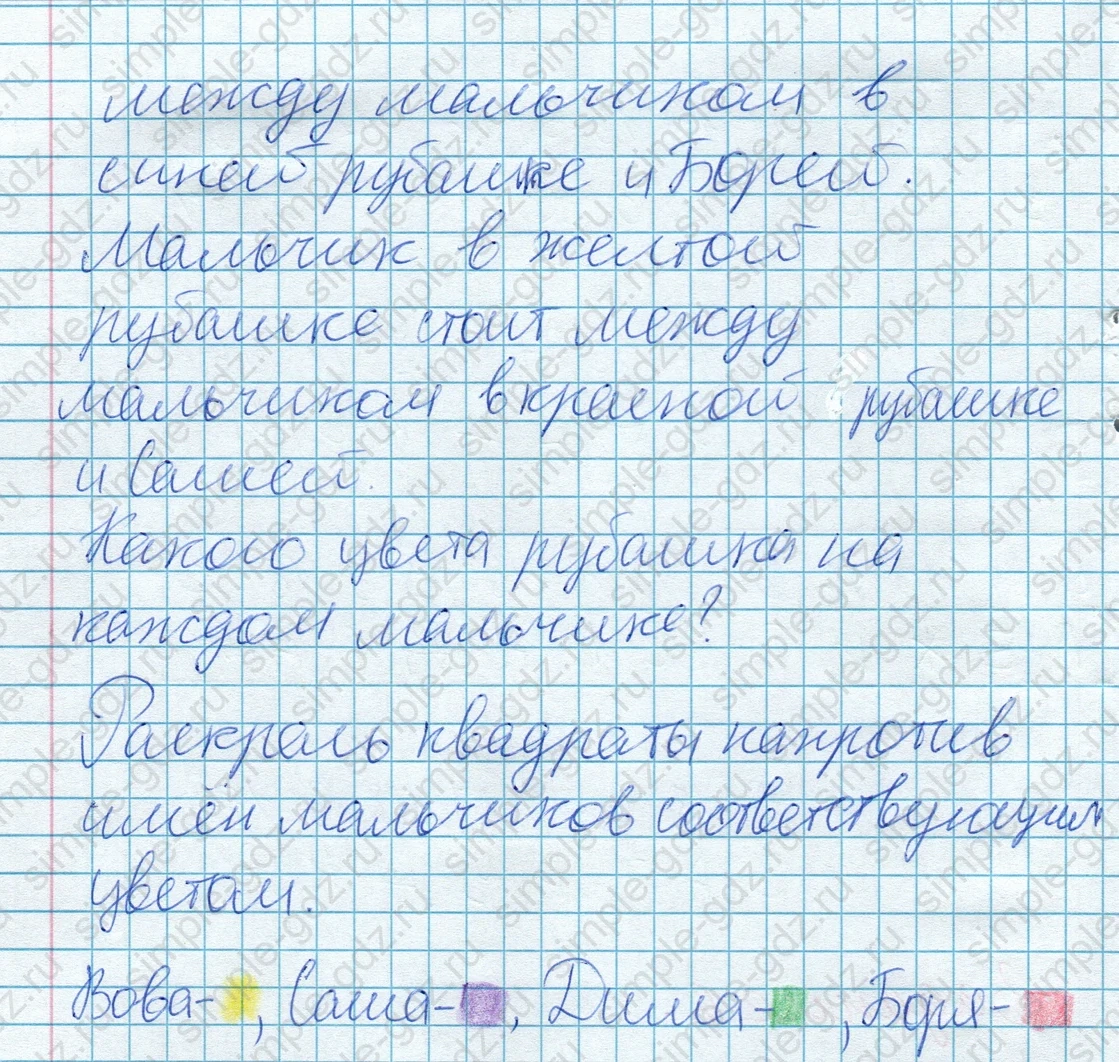 между мальчиком в
синей рубашке и Борей.
Мальчик в желтой
рубашке стоит между
мальчиком в красной рубашке
и Сашей.
Какого цвета рубашка на
каждом мальчике?
Раскрась квадраты напротив
имён мальчиков соответствующим
цветом.
Вова- , Саша- , Дима- , Боря-
simple-gdz.ru